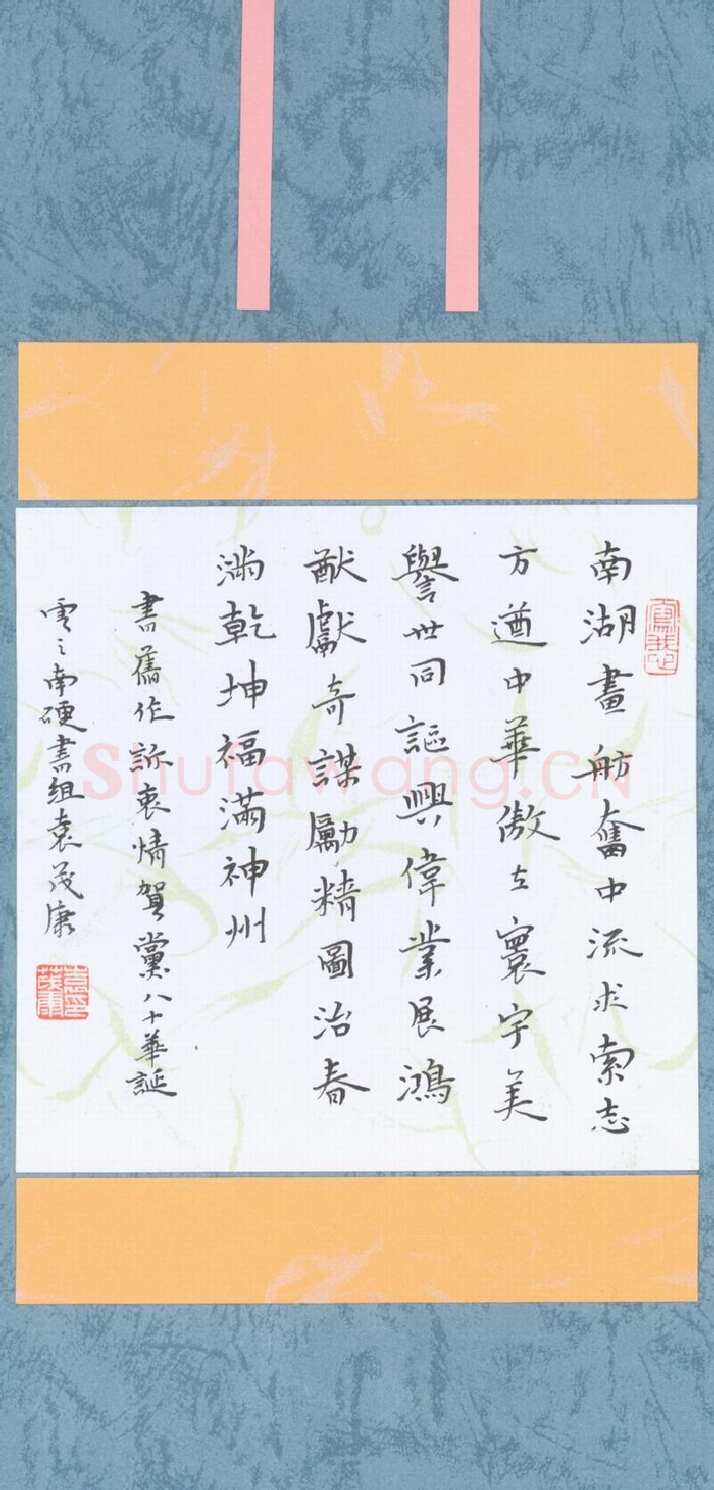 南湖畫舫奮中流求索志
方遒中華傲立寰宇美
譽世同謳興偉業展鴻
猷獻奇謀勵精圖治春
滿乾坤福滿神州
書舊作訴衷情賀黨八十華誕
雲之南硬書組袁茂康
袁茂康印
Shufawang.CN